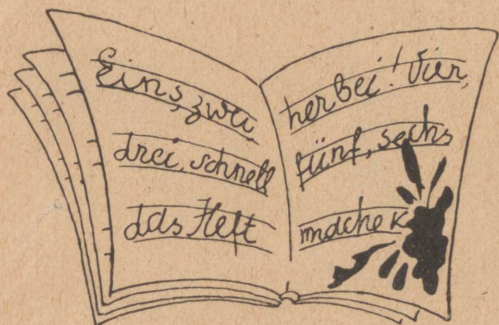 Eins, zwei,
drei, schnell
das Heft
herbei! Vier,
fünf, sechs
mache K